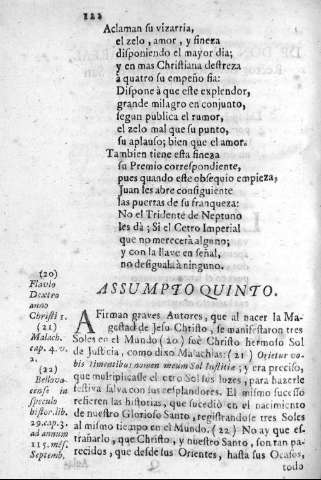 122
Aclaman su vizarria,
el zelo, amor, y fineza
disponiendo el mayor dia;
y en mas Christiana destreza
à quatro su empeño fia:
Dispone à que este explendor,
grande milagro en conjunto,
segun publica el rumor,
el zelo mal que su punto,
su aplauso; bien que el amor.
Tambien tiene esta fineza
su Premio correspondiente,
pues quando este obsequio empieza,
Juan les abre consiguiente
las puertas de su franqueza:
No el Tridente de Neptuno
les dà; Si el Cetro Imperial
que no merecerà alguno;
y con la llave en señal,
no desiguala à ninguno.
ASSUMPTO QUINTO.
(20)
Flavio
Dextro
anno
Christi 1.
(21)
Malach.
cap. 4. v.
2.
(22)
Bellova-
cense in
speculo
histor. lib.
29. cap. 3.
ad annum
115. mēs.
Septemb.
AFirman graves Autores, que al nacer la Ma-
gestad de Jesu Christo, se manifestaron tres
Soles en el Mundo (20) fuè Christo hermoso Sol
de Justicia, como dixo Malachias: (21) Orietur vo-
bis timentibus nomen meum Sol Iustitiæ; y era preciso,
que multiplicasse el otro Sol sus luzes, para hazerle
festiva salva con sus resplandores. El mismo sucesso
refieren las historias, que sucediò en el nacimiento
de nuestro Glorioso Santo, registrandose tres Soles
al mismo tiempo en el Mundo. (22) No ay que es-
trañarlo, que Christo, y nuestro Santo, son tan pa-
recidos, que desde sus Orientes, hasta sus Ocasos,
todo